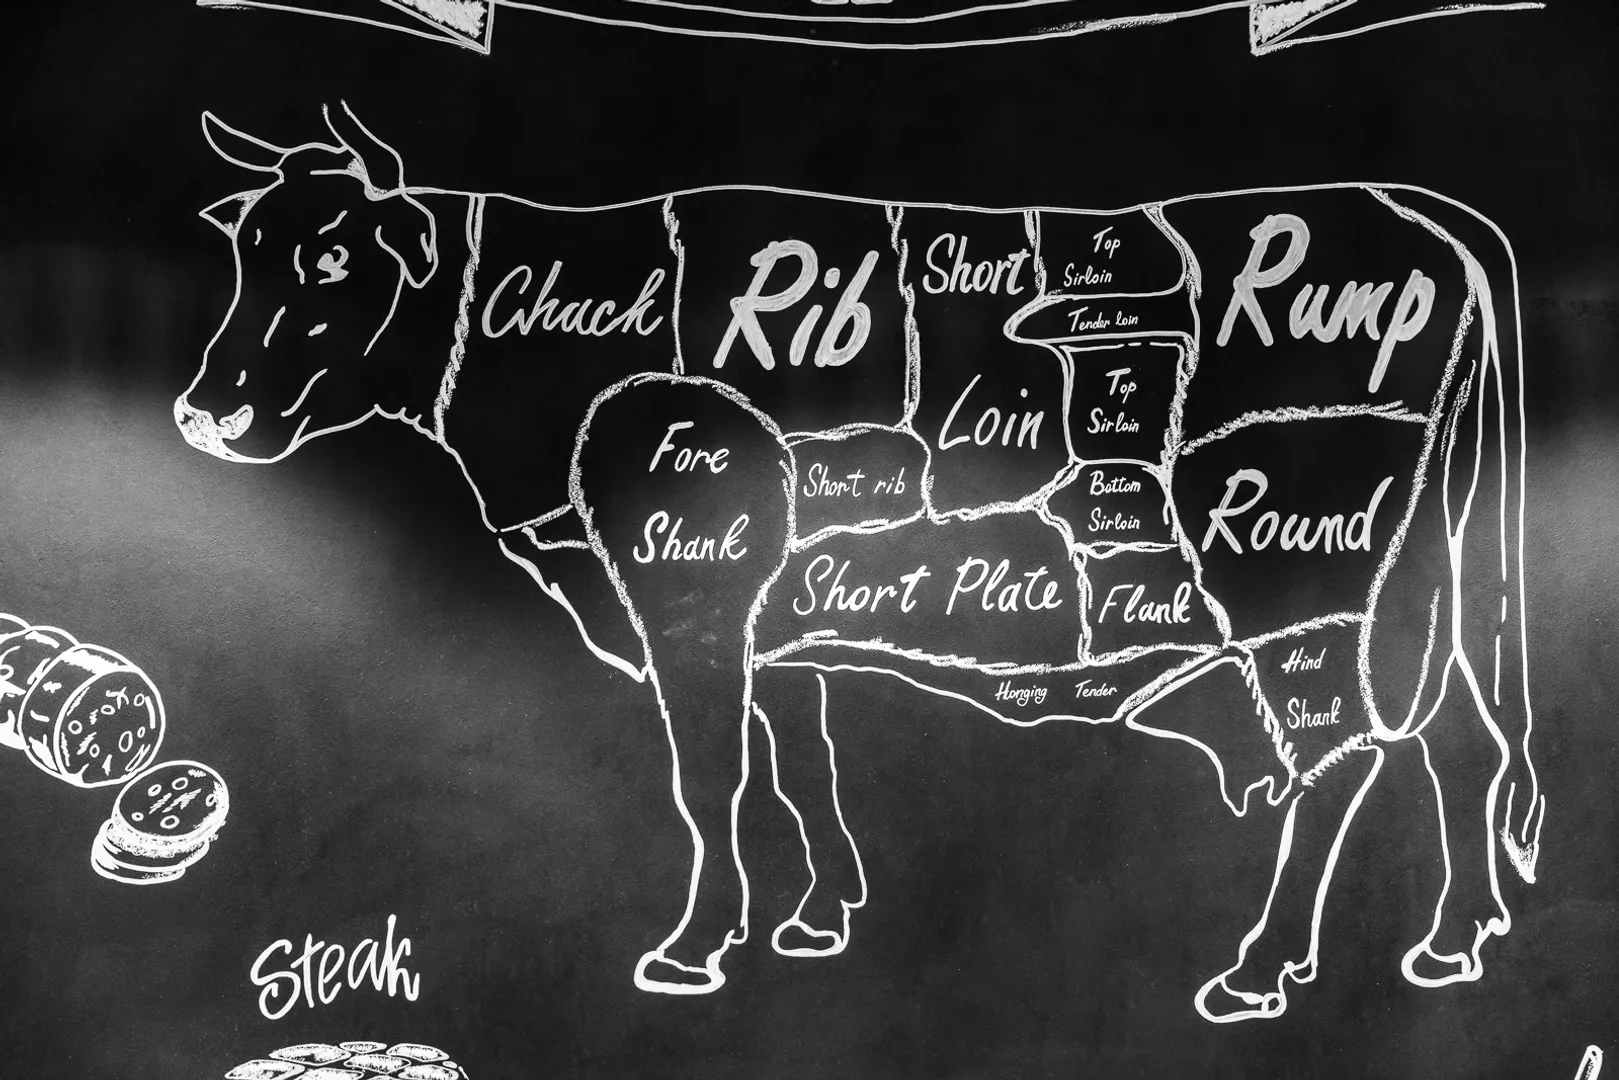 Chuck
Rib
Short
Loin
Top
Sirloin
Tender loin
Top
Sirloin
Bottom
Sirloin
Rump
Round
Fore
Shank
Short rib
Short Plate
Flank
Hanging Tender
Hind
Shank
Steak